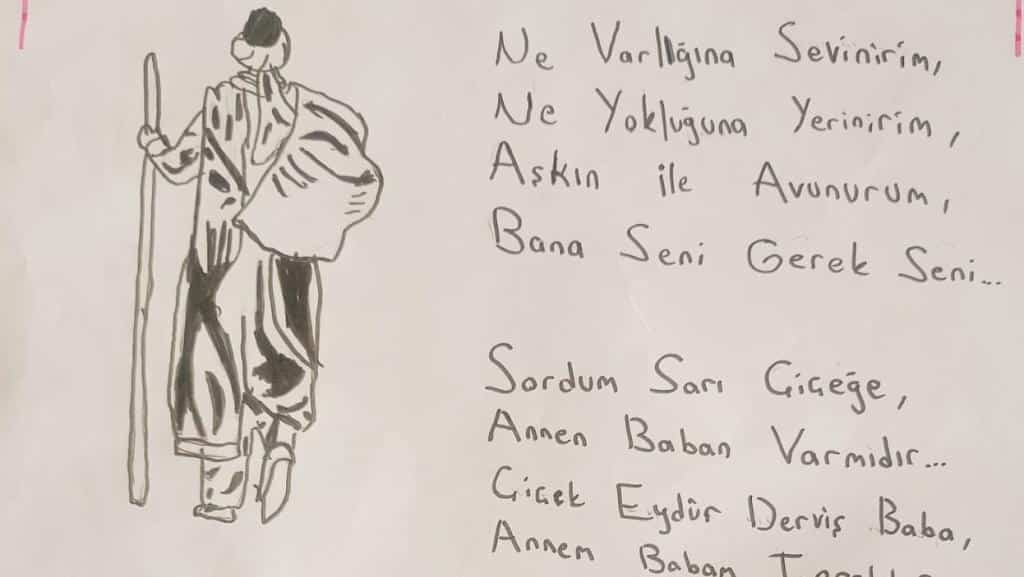 Ne Varlığına Sevinirim,
Ne Yokluğuna Yerinirim,
Aşkın ile Avunurum,
Bana Seni Gerek Seni...
Sordum Sarı Çiçeğe,
Annen Baban Varmıdır...
Çiçek Eydür Derviş Baba,
Annem Babam